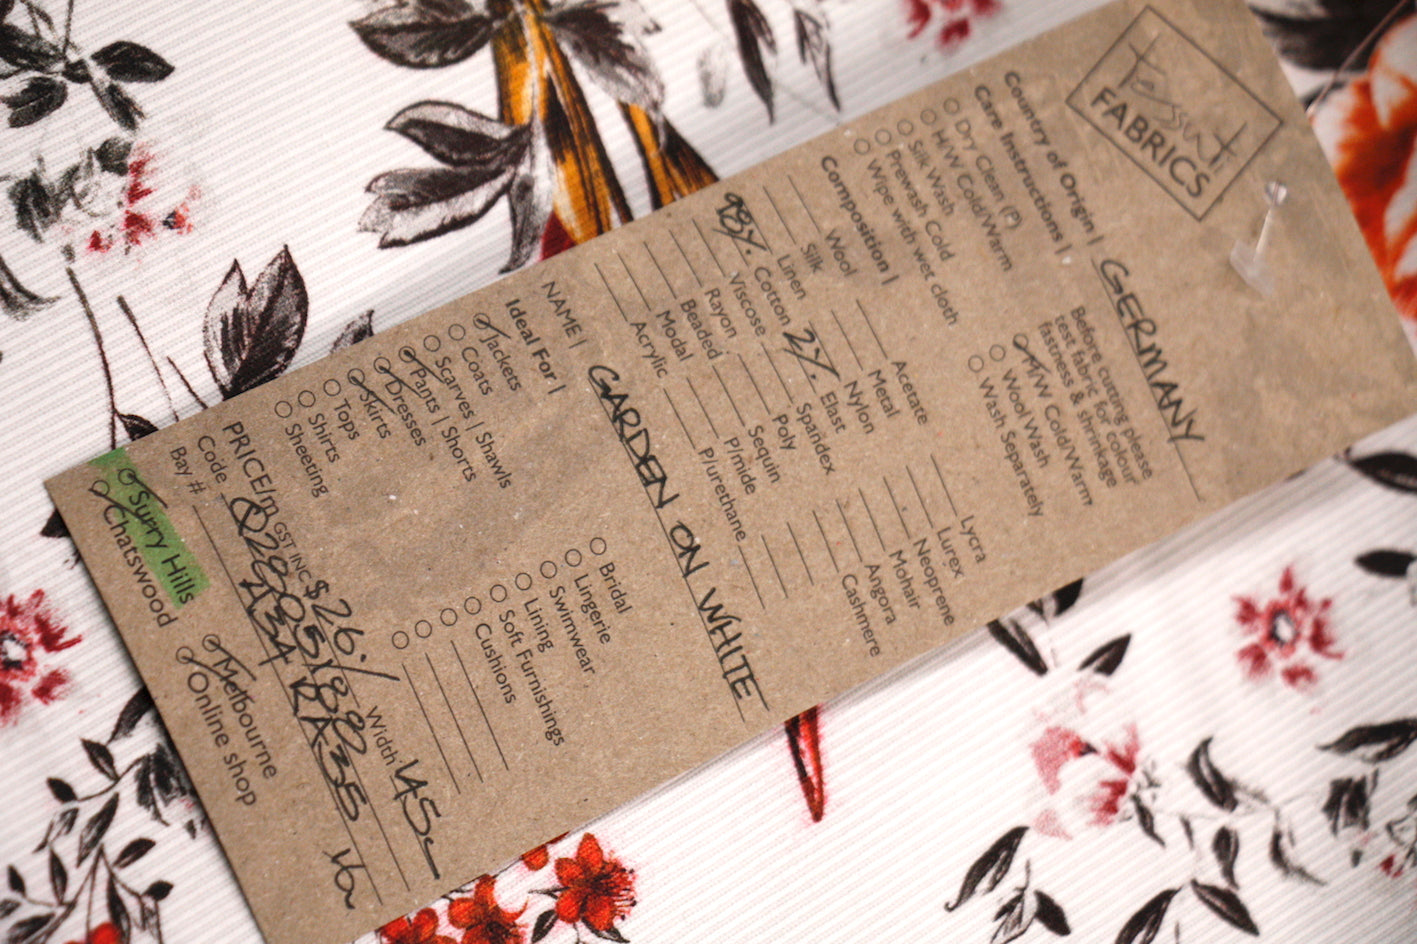 Tessuti
FABRICS
Country of Origin | GERMANY
Care Instructions | Before cutting please
test fabric for colour
fastness & shrinkage
Dry Clean (P) H/W Cold/Warm
H/W Cold/Warm Wool Wash
Silk Wash Wash Separately
Prewash Cold
Wipe with wet cloth
Composition |
Wool Acetate Lycra
Silk Metal Lurex
Linen Nylon Neoprene
98%. Cotton 2%. Elast Mohair
Viscose Spandex Angora
Rayon Poly Cashmere
Beaded Sequin
Modal P/mide
Acrylic P/urethane
NAME | GARDEN ON WHITE
Ideal For |
Jackets Bridal
Coats Lingerie
Scarves | Shawls Swimwear
Pants | Shorts Lining
Dresses Soft Furnishings
Skirts Cushions
Tops
Shirts
Sheeting
PRICE/m GST INC $26./ Width 145c
Code
Bay # A34 RA35
Surry Hills Melbourne
Chatswood Online shop